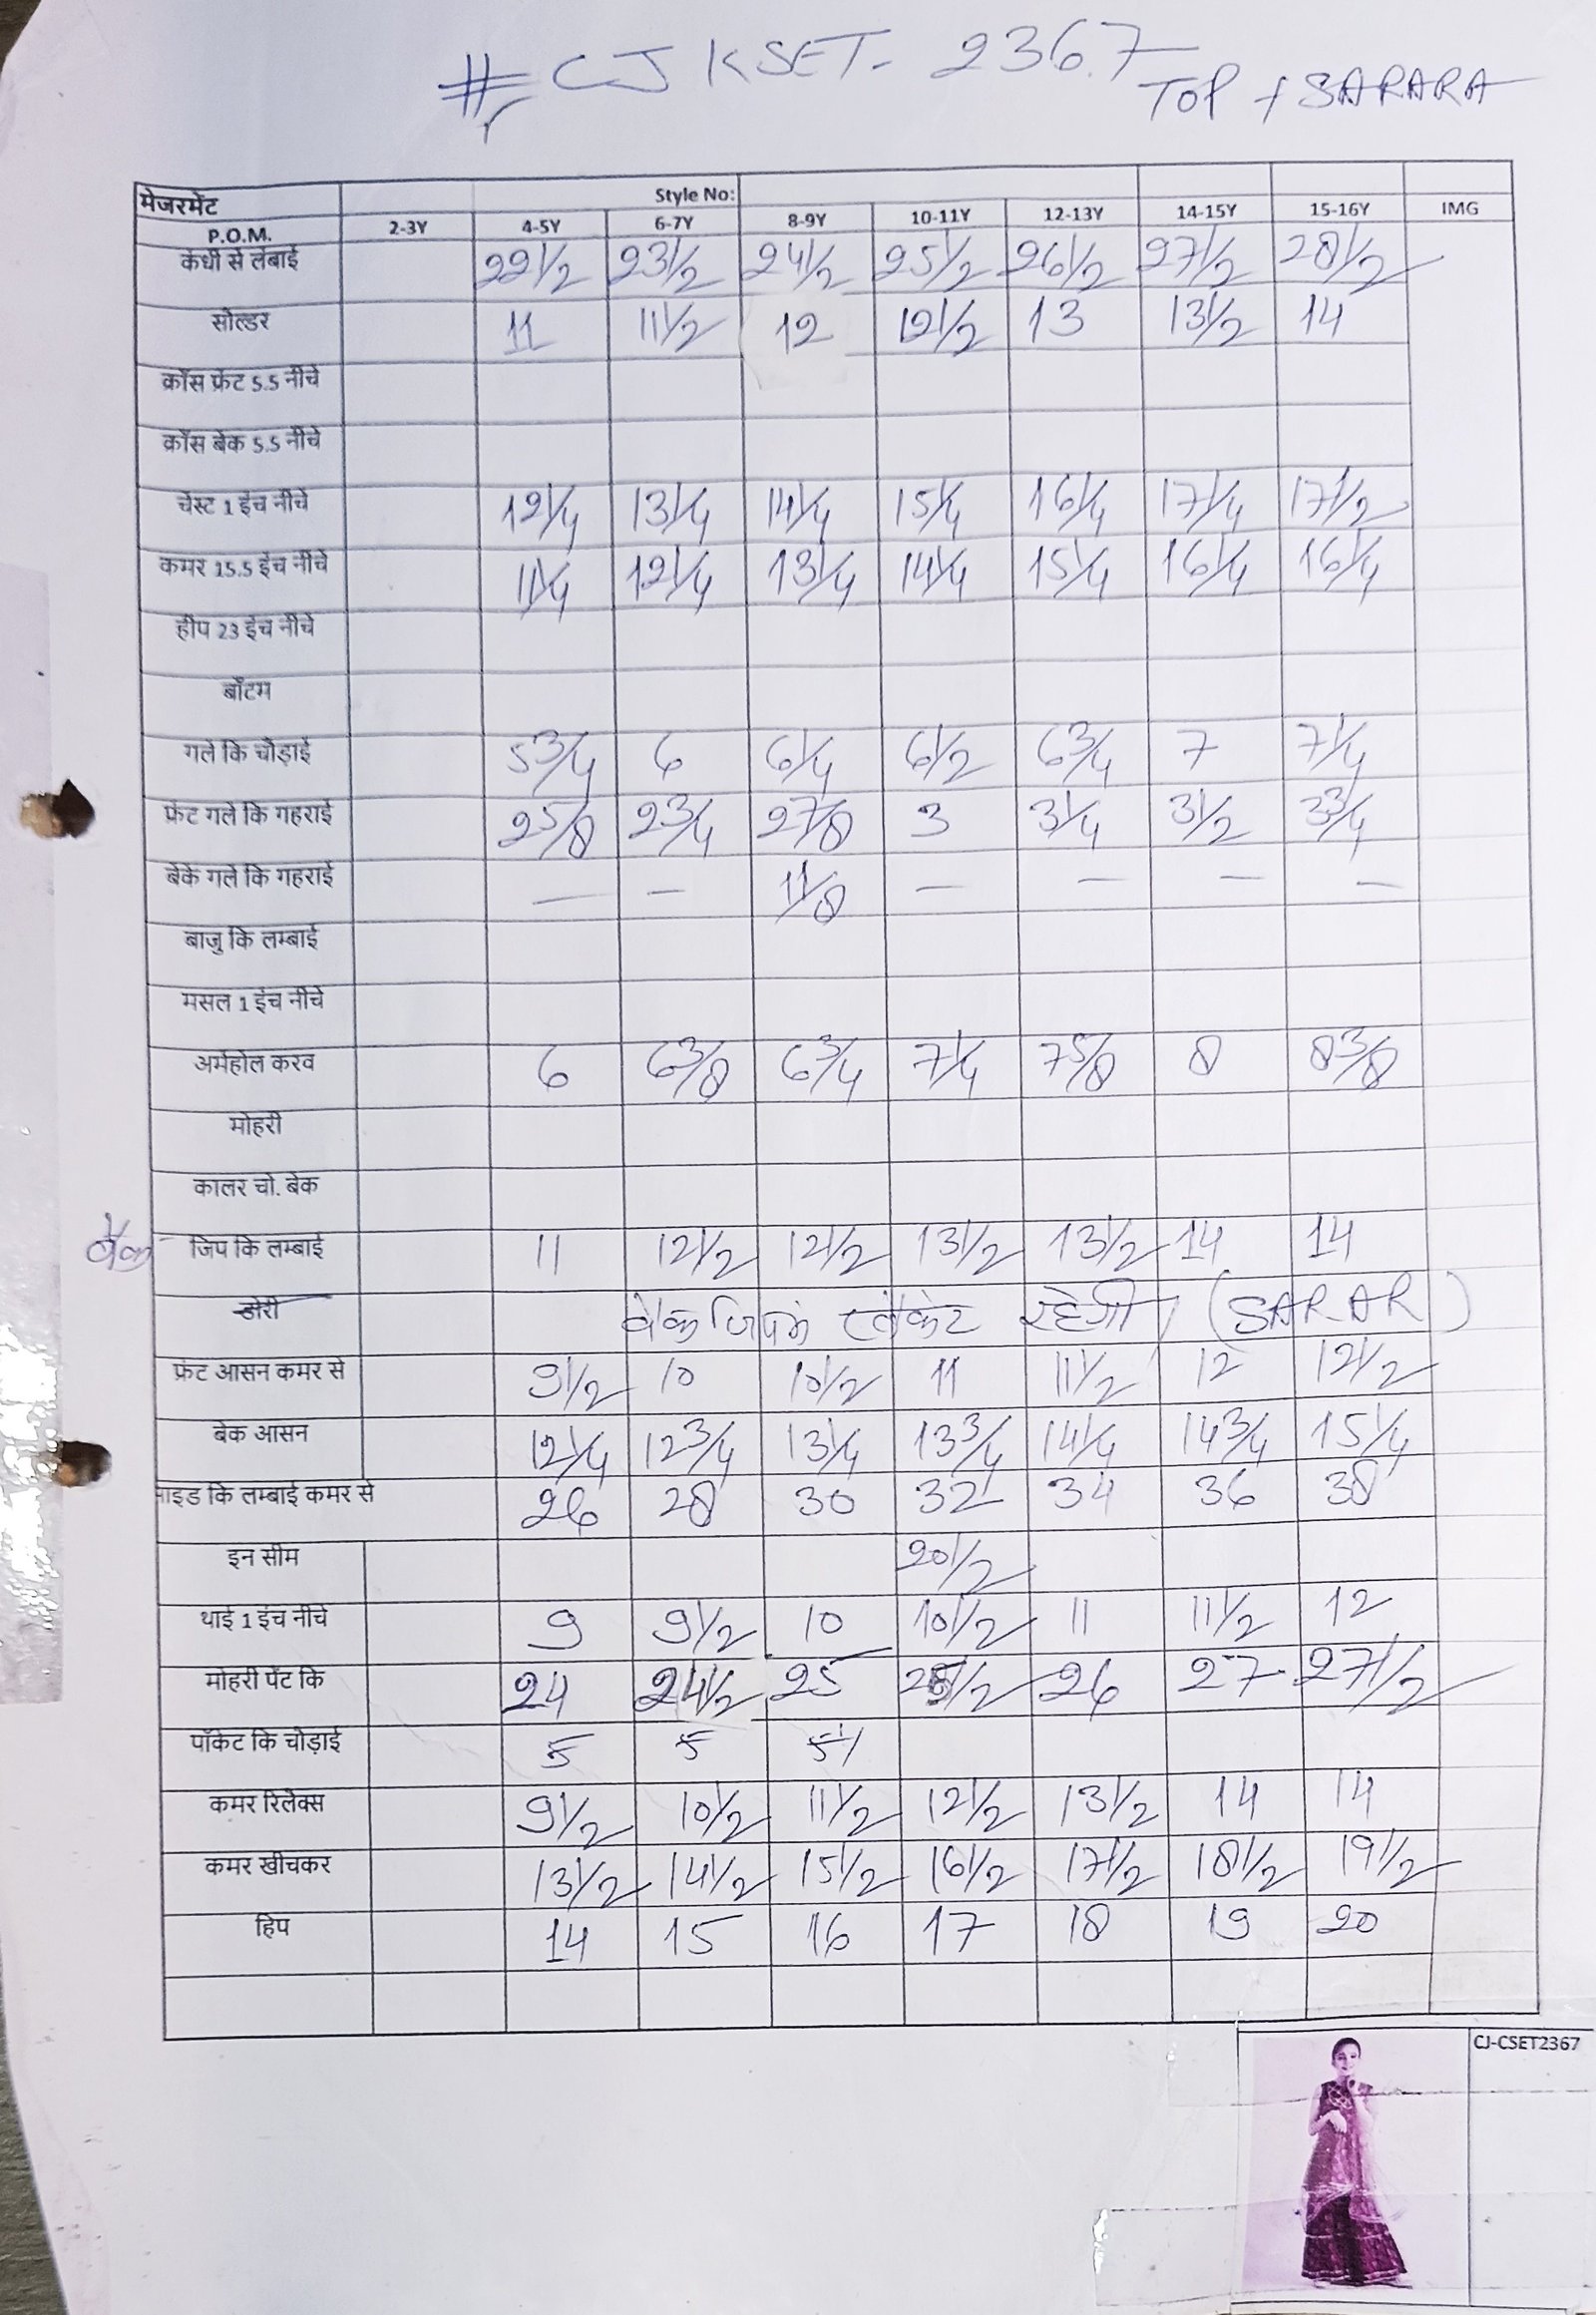 # CJ KSET- 2367
TOP + SARARA
मेजरमेंट Style No:
P.O.M. 2-3Y 4-5Y 6-7Y 8-9Y 10-11Y 12-13Y 14-15Y 15-16Y IMG
कंधी से लंबाई 22 1/2 23 1/2 24 1/2 25 1/2 26 1/2 27 1/2 28 1/2
सोल्डर 11 11 1/2 12 12 1/2 13 13 1/2 14
क्रॉस फ्रंट 5.5 नीचे
क्रॉस बेक 5.5 नीचे
चेस्ट 1 इंच नीचे 12 1/4 13 1/4 14 1/4 15 1/4 16 1/4 17 1/4 17 1/2
कमर 15.5 इंच नीचे 11 1/4 12 1/4 13 1/4 14 1/4 15 1/4 16 1/4 16 1/4
हीप 23 इंच नीचे
बॉटम
गले कि चौड़ाई 5 3/4 6 6 1/4 6 1/2 6 3/4 7 7 1/4
फ्रंट गले कि गहराई 2 5/8 2 3/4 2 7/8 3 3 1/4 3 1/2 3 3/4
बेक गले कि गहराई — — 1 1/8 — — — —
बाजु कि लम्बाई
मसल 1 इंच नीचे
अर्महोल करव 6 6 3/8 6 3/4 7 1/4 7 5/8 8 8 3/8
मोहरी
कालर चो. बेक
बैक जिप कि लम्बाई 11 12 1/2 12 1/2 13 1/2 13 1/2 14 14
डोरी बैक जिपमे रहेगी (SARAR)
फ्रंट आसन कमर से 9 1/2 10 10 1/2 11 11 1/2 12 12 1/2
बेक आसन 12 1/4 12 3/4 13 1/4 13 3/4 14 1/4 14 3/4 15 1/4
साइड कि लम्बाई कमर से 26 28 30 32 34 36 38
इन सीम 20 1/2
थाई 1 इंच नीचे 9 9 1/2 10 10 1/2 11 11 1/2 12
मोहरी पेंट कि 24 24 1/2 25 25 1/2 26 27 27 1/2
पॉकेट कि चोड़ाई 5 5
कमर रिलेक्स 9 1/2 10 1/2 11 1/2 12 1/2 13 1/2 14 14
कमर खीचकर 13 1/2 14 1/2 15 1/2 16 1/2 17 1/2 18 1/2 19 1/2
हिप 14 15 16 17 18 19 20
CJ-CSET2367